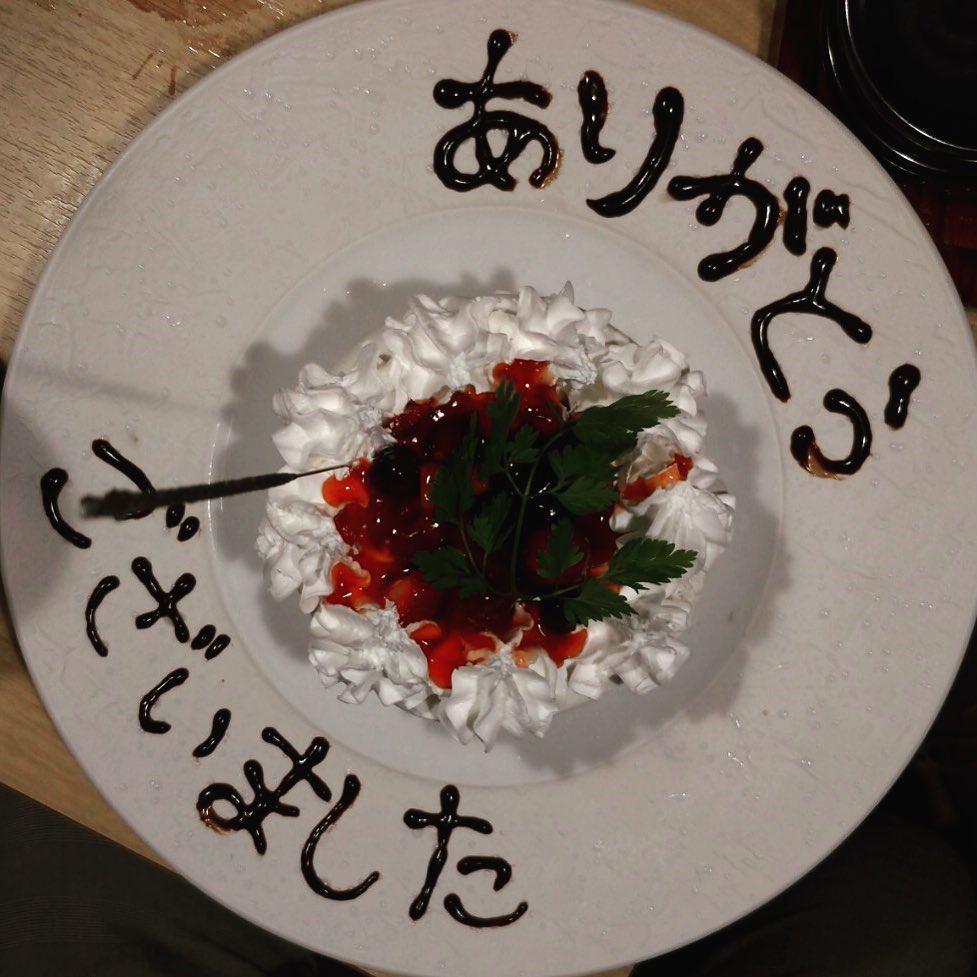 ありがとう
ございました